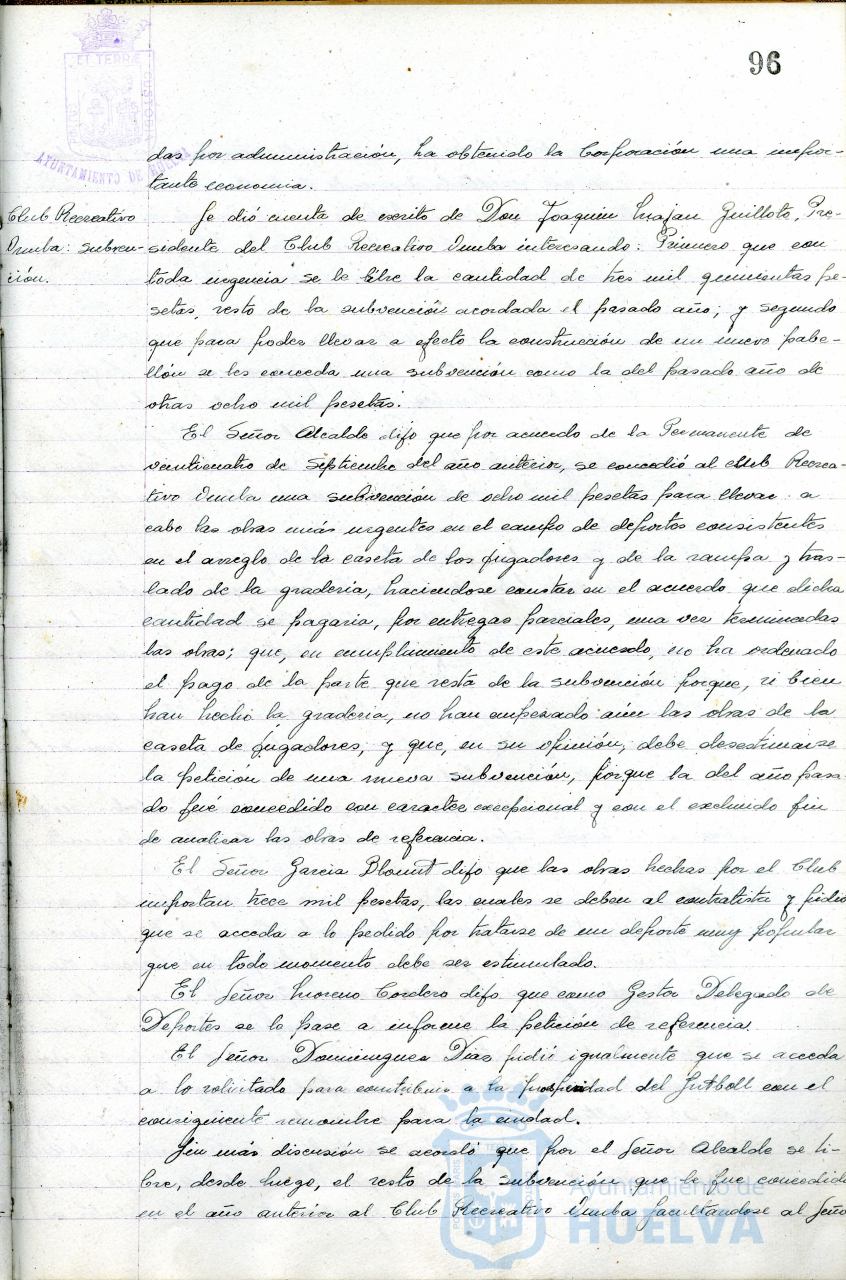 96
ET TERRÆ
CUSTODIA
AYUNTAMIENTO DE HUELVA
das por administración, ha obtenido la Corporación una impor-
tante economia.
Club Recreativo
Onuba: subven-
ción.
Se dió cuenta de escrito de Don Joaquin Guillote, Pre-
sidente del Club Recreativo Onuba interesando: Primero que con
toda urgencia se le libre la cantidad de tres mil quinientas pe-
setas, resto de la subvención acordada el pasado año; y segundo
que para poder llevar a efecto la construcción de un nuevo pabe-
llón se les conceda una subvención como la del pasado año de
otras ocho mil pesetas.
El Señor Alcalde dijo que por acuerdo de la Permanente de
veinticuatro de Septiembre del año anterior, se concedió al Club Recrea-
tivo Onuba una subvención de ocho mil pesetas para llevar a
cabo las obras más urgentes en el campo de deportes consistentes
en el arreglo de la caseta de los jugadores y de la rampa y tras-
lado de la graderia, haciendose constar en el acuerdo que dicha
cantidad se pagaria, por entregas parciales, una vez terminadas
las obras; que, en cumplimiento de este acuerdo, no ha ordenado
el pago de la parte que resta de la subvención porque, si bien
han hecho la graderia, no han empezado aún las obras de la
caseta de jugadores; y que, en su opinión, debe desestimarse
la petición de una nueva subvención, porque la del año pasa-
do fué concedido con caracter excepcional y con el excluido fin
de analizar las obras de referencia.
El Señor Garcia Blount dijo que las obras hechas por el Club
importan trece mil pesetas, las cuales se deben al contratista y pidió
que se acceda a lo pedido por tratarse de un deporte muy popular
que en todo momento debe ser estimulado.
El Señor Moreno Cordero dijo que como Gestor Delegado de
Deportes se le pase a informe la petición de referencia.
El Señor Dominguez Diaz pidió igualmente que se acceda
a lo solicitado para contribuir a la prosperidad del futboll con el
consiguiente renombre para la ciudad.
Sin más discusión se acordó que por el Señor Alcalde se li-
bre, desde luego, el resto de la subvención que le fue concedida
en el año anterior al Club Recreativo Onuba facultándose al Seño
Ayuntamiento de
HUELVA